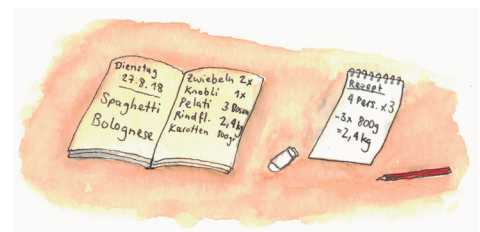 Dienstag
27.8.18
Spaghetti
Bolognese
Zwiebeln 2x
Knobli 1x
Pelati 3 Dosen
Rindfl. 2,4kg
Karotten 800gr
Rezept
4 Pers. x3
-3x 800g
=2,4kg